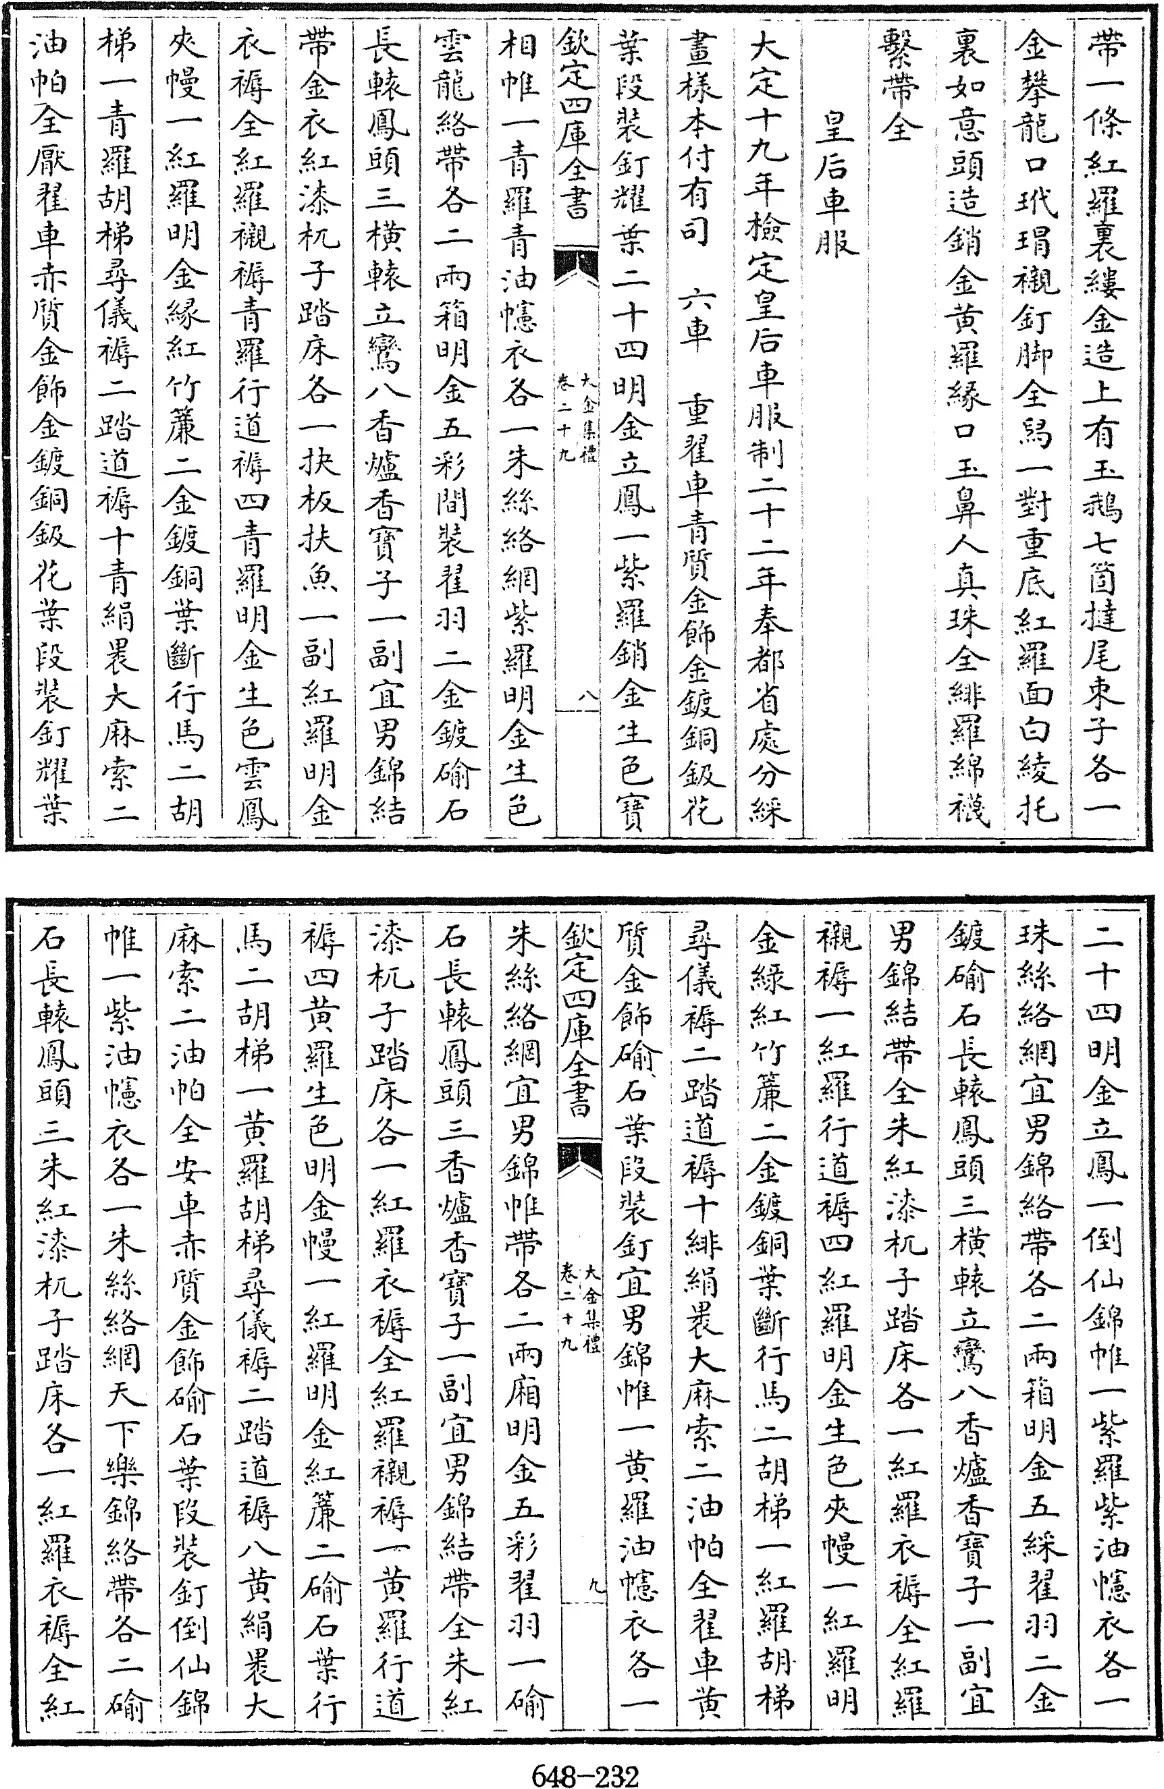 帶一條紅羅裏縷金造上有玉鵝七箇撻尾束子各一
金攀龍口玳瑁襯釘脚全舄一對重底紅羅面白綾托
裏如意頭造銷金黃羅緣口玉鼻人真珠全緋羅綿襪
繫帶全
皇后車服
大定十九年檢定皇后車服制二十二年奉都省處分綵
畫樣本付有司　六車　重翟車青質金飾金鍍銅鈒花
葉段裝釘耀葉二十四明金立鳳一紫羅銷金生色寶
欽定四庫全書　大金集禮卷二十九　八
相帷一青羅青油幰衣各一朱絲絡網紫羅明金生色
雲龍絡帶各二兩箱明金五彩間裝翟羽二金鍍鍮石
長轅鳳頭三橫轅立鸞八香爐香寶子一副宜男錦結
帶金衣紅漆杌子踏床各一抉板扶魚一副紅羅明金
衣褥全紅羅襯褥青羅行道褥四青羅明金生色雲鳳
夾幔一紅羅明金緣紅竹簾二金鍍銅葉斷行馬二胡
梯一青羅胡梯尋儀褥二踏道褥十青絹裹大麻索二
油帕全厭翟車赤質金飾金鍍銅鈒花葉段裝釘耀葉
二十四明金立鳳一倒仙錦帷一紫羅紫油幰衣各一
珠絲絡網宜男錦絡帶各二兩箱明金五綵翟羽二金
鍍鍮石長轅鳳頭三橫轅立鸞八香爐香寶子一副宜
男錦結帶全朱紅漆杌子踏床各一紅羅衣褥全紅羅
襯褥一紅羅行道褥四紅羅明金生色夾幔一紅羅明
金緣紅竹簾二金鍍銅葉斷行馬二胡梯一紅羅胡梯
尋儀褥二踏道褥十緋絹裹大麻索二油帕全翟車黃
質金飾鍮石葉段裝釘宜男錦帷一黃羅油幰衣各一
欽定四庫全書　大金集禮卷二十九　九
朱絲絡網宜男錦帷帶各二兩廂明金五彩翟羽一鍮
石長轅鳳頭三香爐香寶子一副宜男錦結帶全朱紅
漆杌子踏床各一紅羅衣褥全紅羅襯褥一黃羅行道
褥四黃羅生色明金幔一紅羅明金紅簾二鍮石葉行
馬二胡梯一黃羅胡梯尋儀褥二踏道褥八黃絹裹大
麻索二油帕全安車赤質金飾鍮石葉段裝釘倒仙錦
帷一紫油幰衣各一朱絲絡網天下樂錦絡帶各二鍮
石長轅鳳頭三朱紅漆杌子踏床各一紅羅衣褥全紅
648-232